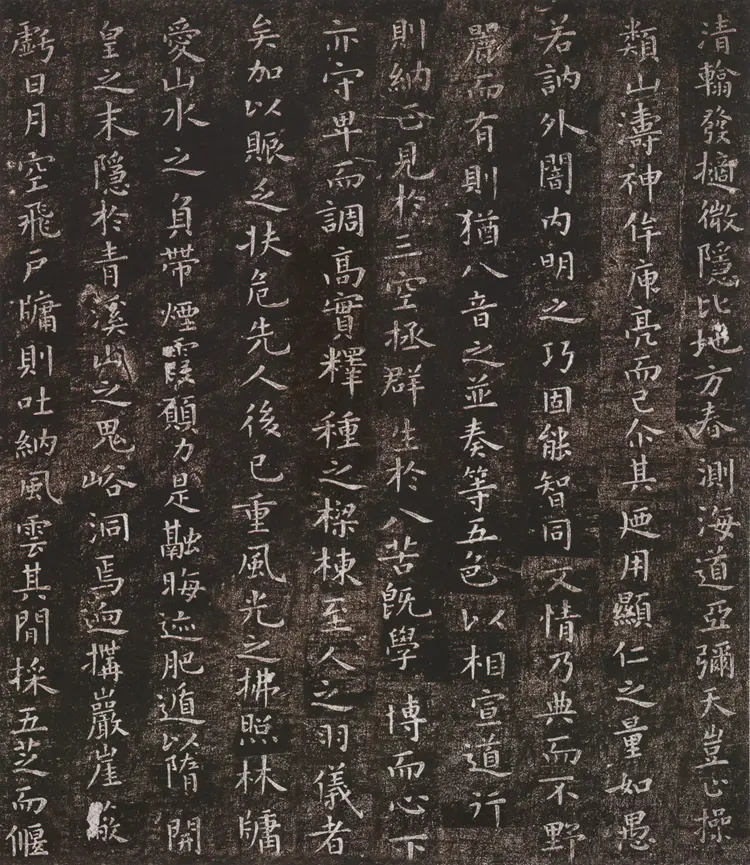 清翰發擿微隱比地方春測海道亞彌天豈止操
類山濤神侔庾亮而已尒其廼用顯仁之量如愚
若訥外闇内明之巧固能智同文情乃典而不野
麗而有則猶八音之並奏等五色以相宣道行
則納正見於三空拯群生於八苦旣學博而心下
亦守卑而調高實釋種之樑棟至人之羽儀者
矣加以賑乏扶危先人後已重風光之拂照林牗
愛山水之負帶煙霞願力是融晦迹肥遁以隋開
皇之末隱於青溪山之鬼峪洞焉迺搆巖崖蔽
虧日月空飛戶牗則吐納風雲其閒採五芝而偃